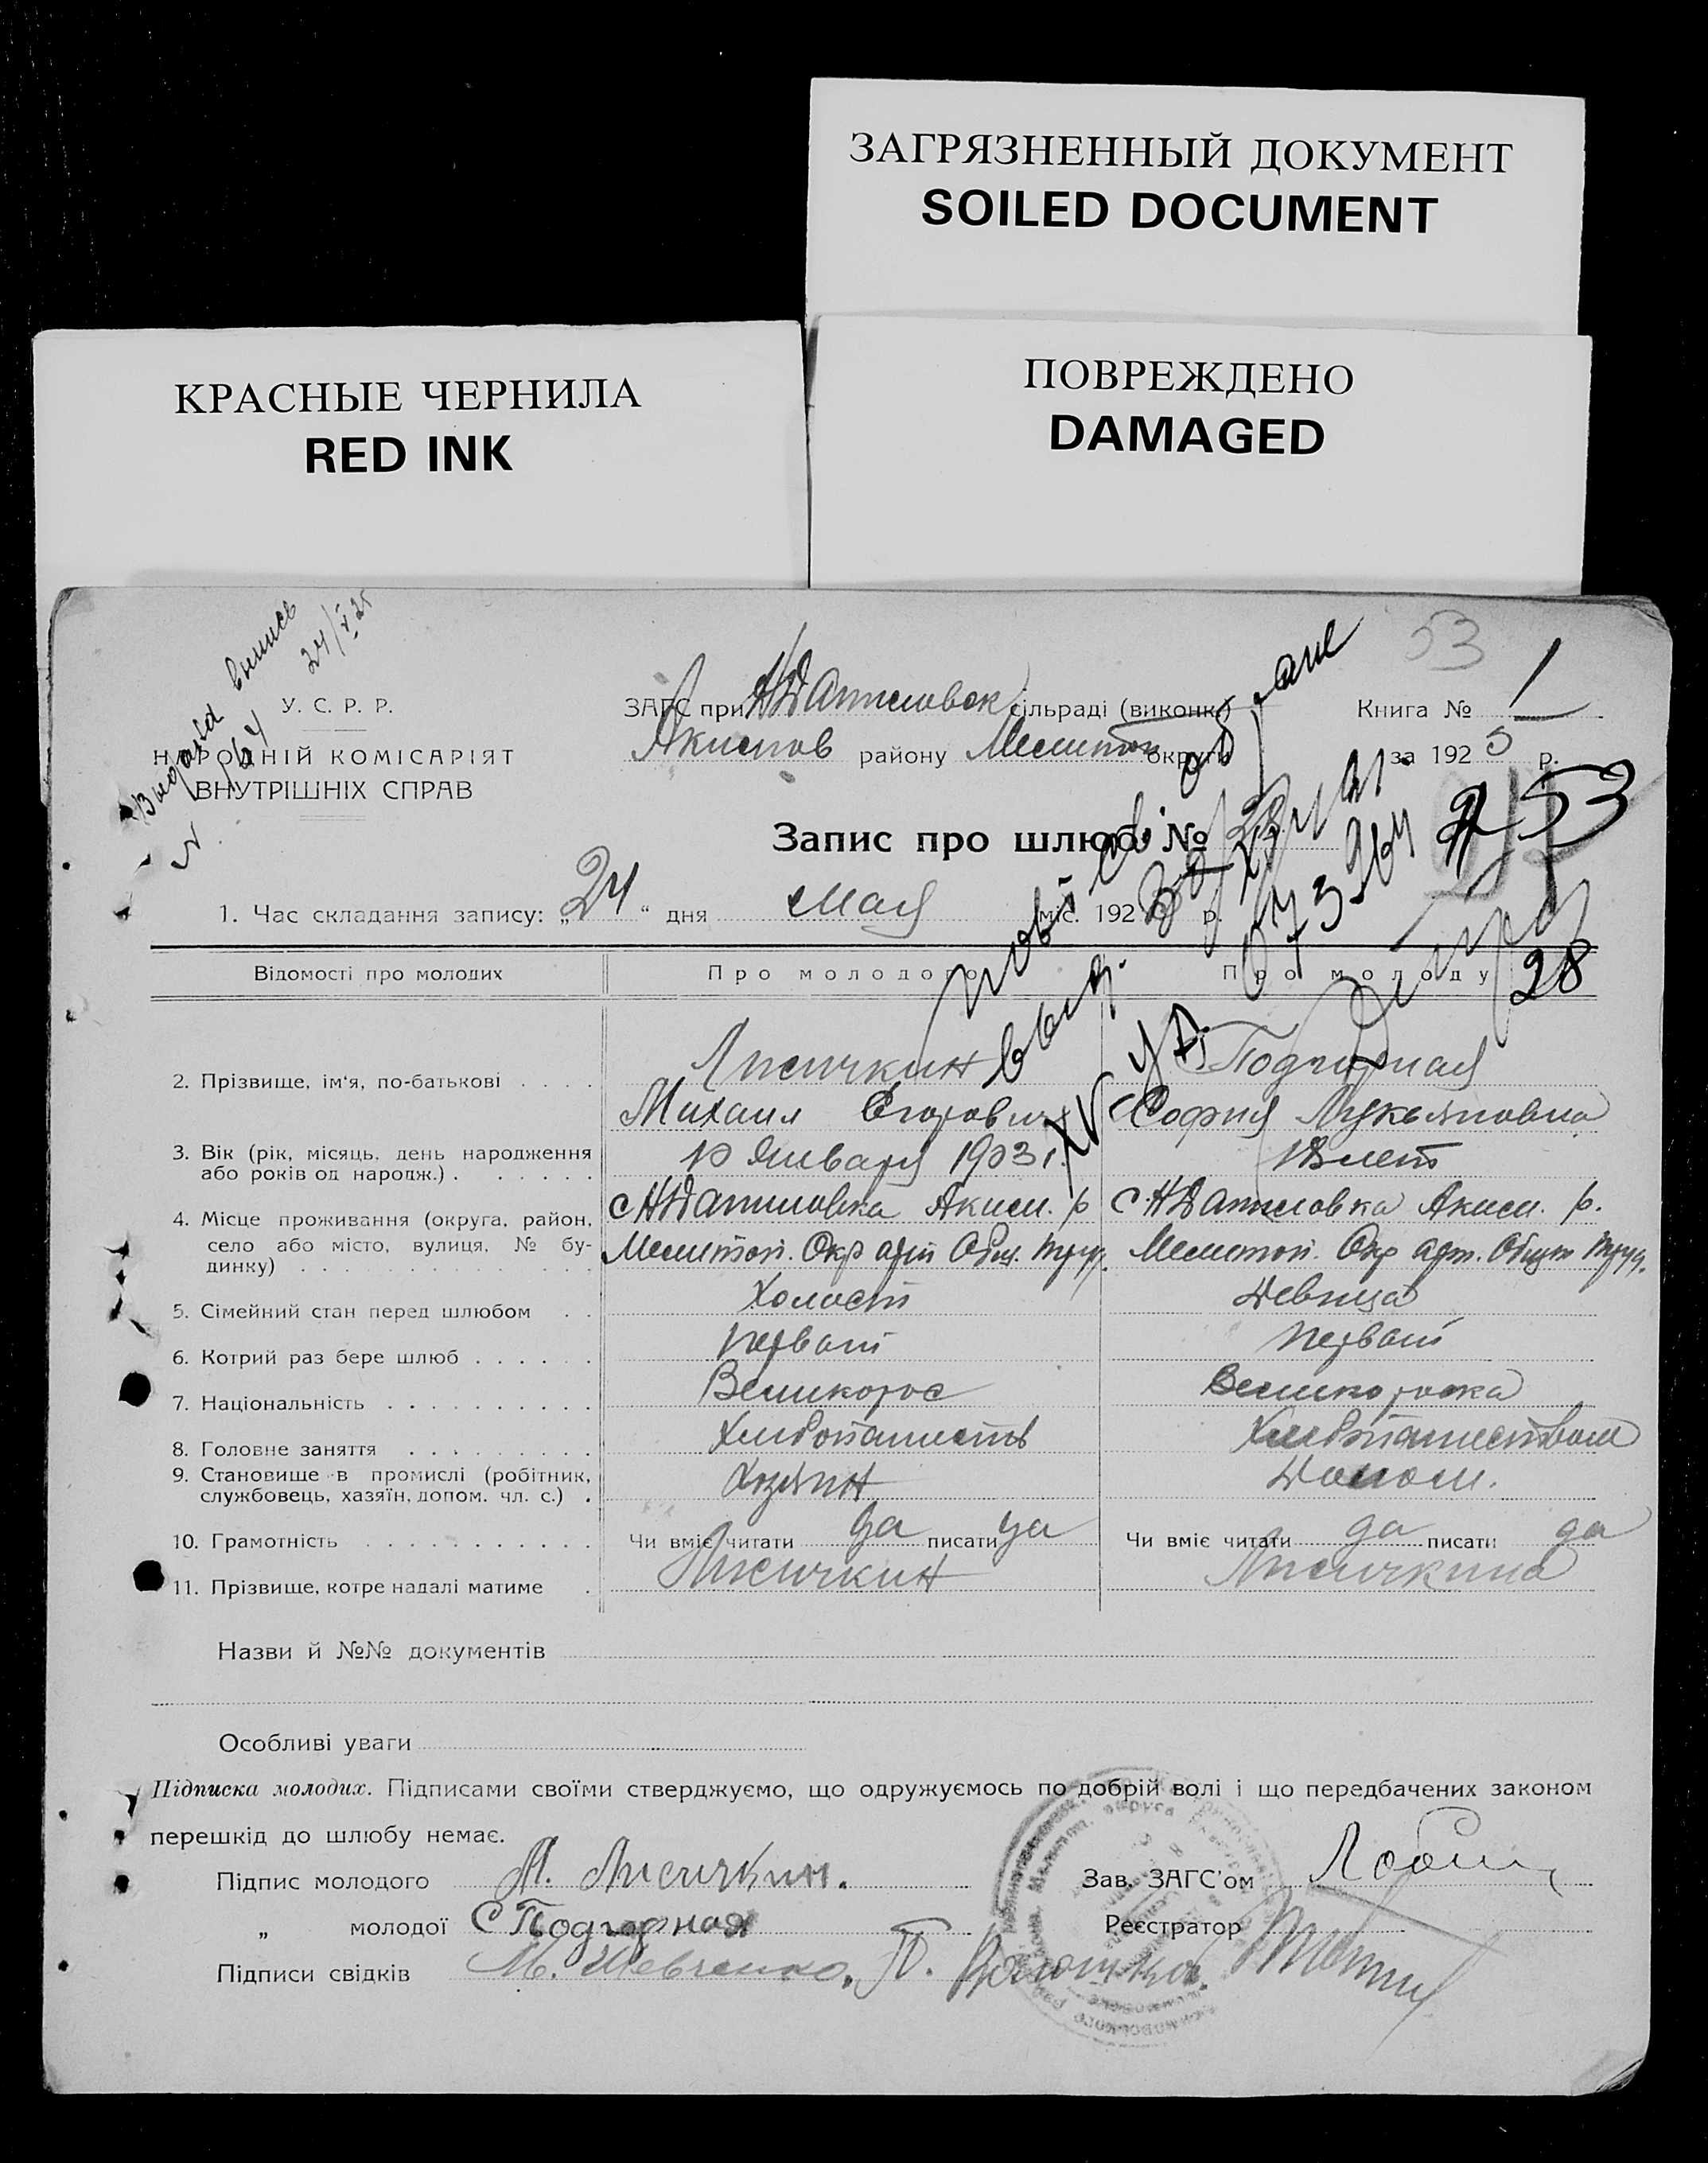 ЗАГРЯЗНЕННЫЙ ДОКУМЕНТ
SOILED DOCUMENT
КРАСНЫЕ ЧЕРНИЛА
RED INK
ПОВРЕЖДЕНО
DAMAGED
53
24/V 25
У. С. Р. Р.
НАРОДНІЙ КОМІСАРІЯТ
ВНУТРІШНІХ СПРАВ
№ 64
ЗАГС при НДаниловск сільраді (виконк.)
Книга № 1
Акимов району Мелитоп округи
за 1925 р.
Запис про шлюб №
53
1. Час складання запису: „24“ дня Мая міс. 192 р.
28
Відомості про молодих
Про молодого
Про молоду
2. Прізвище, ім‘я, по-батькові . . . .
Лисичкин
Подгорная
Михаил Егорович
София Лукьяновна
3. Вік (рік, місяць, день народження або років од народж.) . . . . . .
10 Января 1903 г.
18 лет
4. Місце проживання (округа, район, село або місто, вулиця, № будинку) . . .
с НДаниловка Аким. р
с. НДаниловка Аким. р.
Мелитоп. Окр арт Общ. труд.
Мелитоп. Окр арт. Общ труд.
5. Сімейний стан перед шлюбом . .
Холост
Девица
6. Котрий раз бере шлюб . . . . . .
первый
первый
7. Національність . . . . . . . . . .
Великорос
Великороска
8. Головне заняття . . . . . . . . .
Хлебопашеств
Хлебопашеством
9. Становище в промислі (робітник, службовець, хазяїн, допом. чл. с.) .
Хозяин
Домош.
10. Грамотність . . . . . . . . . . .
Чи вміє читати да писати да
Чи вміє читати да писати да
11. Прізвище, котре надалі матиме .
Лисичкин
Лисичкина
Назви й №№ документів
Особливі уваги
Підписка молодих. Підписами своїми стверджуємо, що одружуємось по добрій волі і що передбачених законом
перешкід до шлюбу немає.
Підпис молодого М. Лисичкин.
Зав. ЗАГС'ом
„ молодої С Подгорная
Реєстратор
Підписи свідків М. Шевченко,